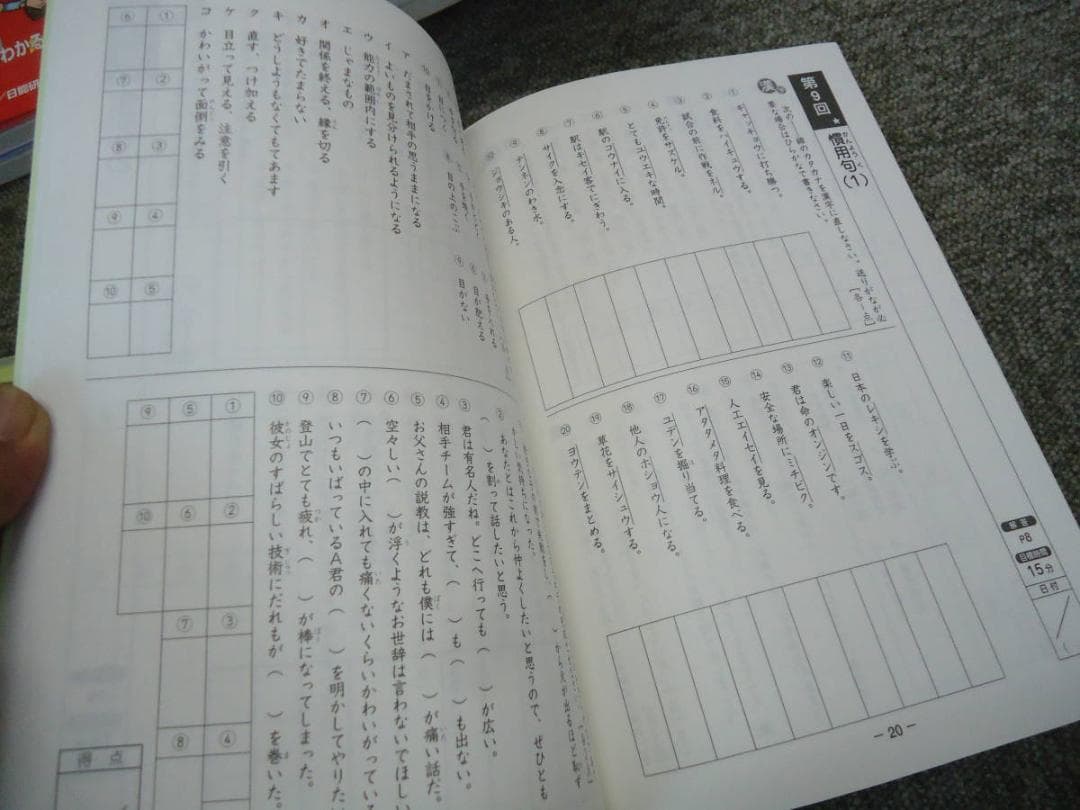 第9回
慣用句(1)
かんようく
漢
次の
線のカタカナを漢字に直しなさい。送りがなが必
要な場合はひらがなで書きなさい。
[各1点]
① ギャッキョウに打ち勝つ。
② 食料をハイキュウする。
③ 試合の前に作戦をネル。
④ 免許をサズケル。
⑤ とてもユウエキな時間。
⑥ 駅のコウナイに入る。
⑦ 駅はキセイ客でにぎわう。
⑧ サイクを入念にする。
⑨ ナンキンのわき水。
⑩ ジョウシキのある人。
⑪ 日本のレキシを学ぶ。
⑫ 楽しい一日をスゴス。
⑬ 君は命のオンジンです。
⑭ 安全な場所にミチビク。
⑮ 人工エイセイを見る。
⑯ アタタメタ料理を食べる。
⑰ ユデンを掘り当てる。
⑱ 他人のホショウ人になる。
⑲ 草花をサイシュウする。
⑳ ヨウテンをまとめる。
解答
P8
目標時間
15分
日付
― 20 ―
目をかける
目のよのこぶ
目が肥える
⑨ 目がない
ア だまされて相手の思うままになる
イ よいものを見分けられるようになる
ウ 能力の範囲内にする
エ じゃまなもの
オ 関係を終える、縁を切る
カ 好きでたまらない
キ どうしようもなくてもてあます
ク 直す、つけ加える
ケ 目立って見える、注意を引く
コ かわいがって面倒をみる
① ② ③ ④ ⑤
⑥ ⑦ ⑧ ⑨ ⑩
から火が出るほど恥ず
かしい気持ちになった。
② あなたとはこれから仲よくしたいと思うので、ぜひとも
( )を割って話したいと思う。
③ 君は有名人だね。どこへ行っても( )が広い。
④ 相手チームが強すぎて、( )も( )も出ない。
⑤ お父さんの説教は、どれも僕には( )が痛い話だ。
⑥ 空々しい( )が浮くようなお世辞は言わないでほしい
⑦ ( )の中に入れても痛くないくらいかわいがっている
⑧ いつもいばっているA君の( )を明かしてやりたい
⑨ 登山でとても疲れ、( )が棒になってしまった。
⑩ 彼女のすばらしい技術にだれもが( )を巻いた。
① ② ③ ④
⑤ ⑥ ⑦ ⑧
⑨ ⑩
得点
わかる
日能研